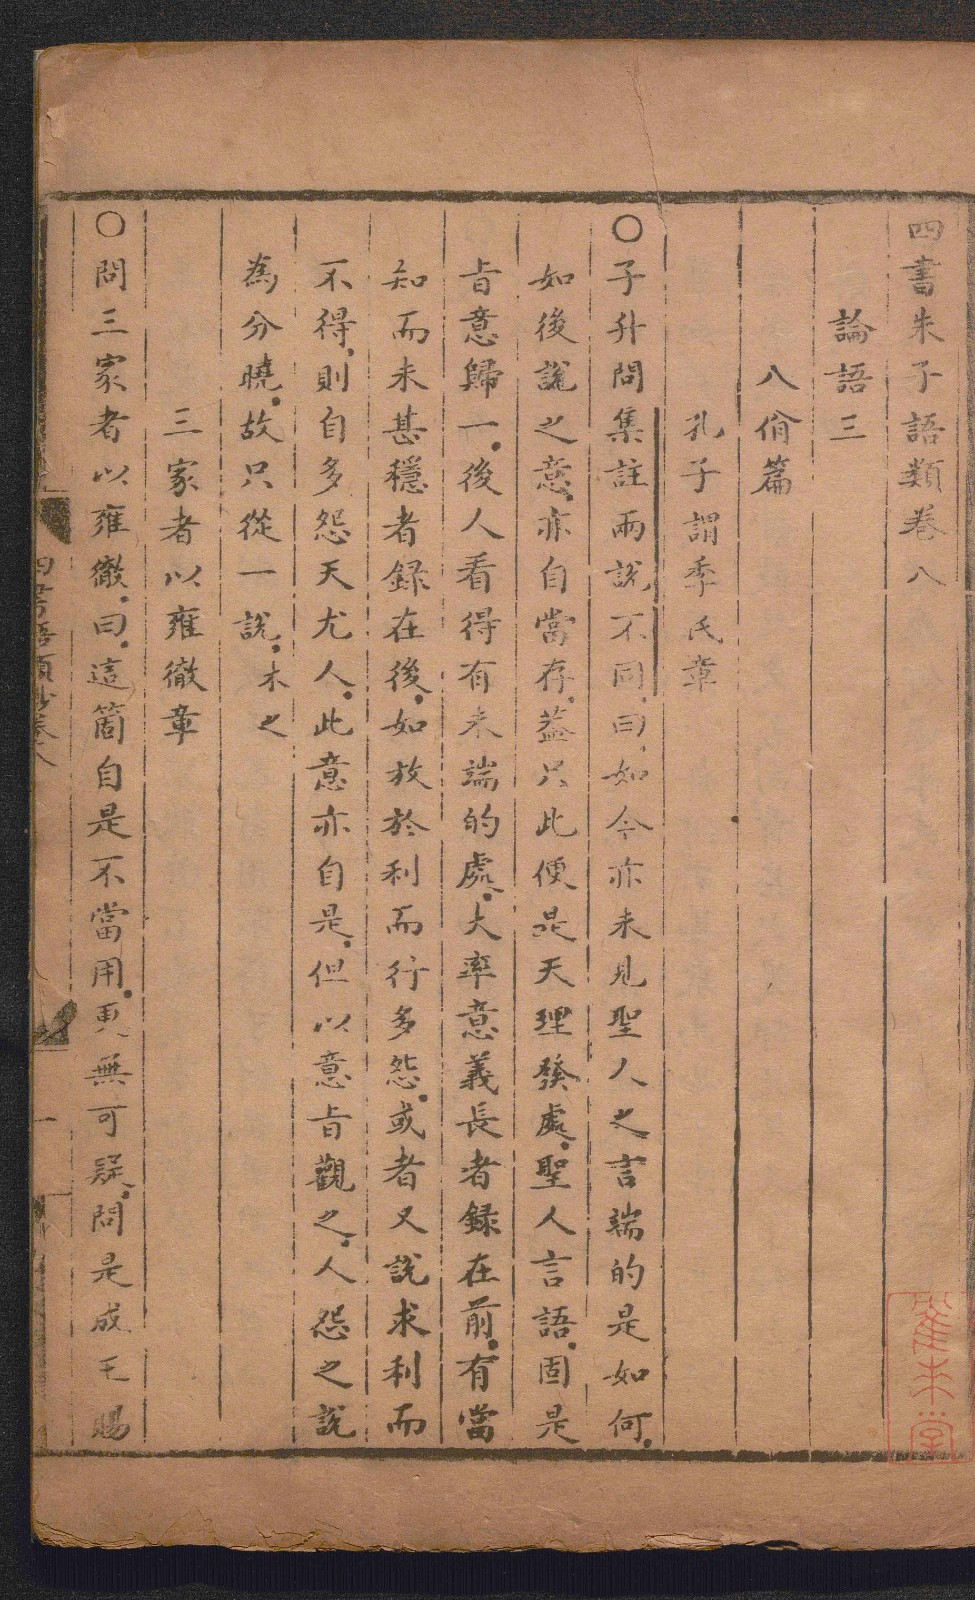 四書朱子語類卷八
論語三
八佾篇
孔子謂季氏章
〇子升問集註兩說不同曰如今亦未見聖人之言端的是如何
如後說之意亦自當存蓋只此便是天理發處聖人言語固是
旨意歸一後人看得有未端的處大率意義長者録在前有當
知而未甚穩者録在後如放於利而行多怨或者又說求利而
不得則自多怨天尤人此意亦自是但以意旨觀之人怨之說
為分曉故只從一說木之
三家者以雍徹章
〇問三家者以雍徹曰這箇自是不當用更無可疑問是成王賜
四書語類抄卷八
一